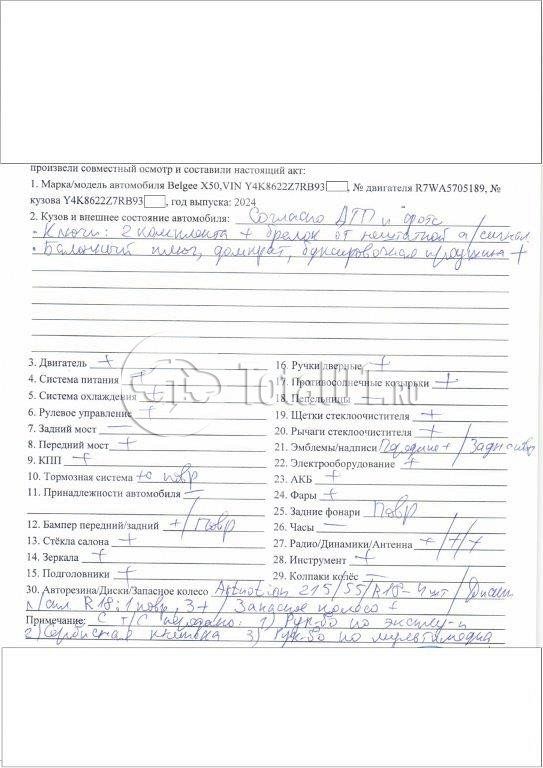 произвели совместный осмотр и составили настоящий акт:
1. Марка/модель автомобиля Belgee X50,VIN Y4K8622Z7RB93, № двигателя R7WA5705189, №
кузова Y4K8622Z7RB93, год выпуска: 2024
2. Кузов и внешнее состояние автомобиля: Согласно ДТП и фото
- Ключи: 2 комплекта + брелок от нештатной а/сигнал.
• Балонный ключ, домкрат, буксировочная проушина +
3. Двигатель +
4. Система питания +
5. Система охлаждения +
6. Рулевое управление +
7. Задний мост —
8. Передний мост +
9. КПП +
10. Тормозная система повр
11. Принадлежности автомобиля —
12. Бампер передний/задний +/повр
13. Стёкла салона +
14. Зеркала +
15. Подголовники +
16. Ручки дверные +
17. Противосолнечные козырьки +
18. Пепельницы
19. Щетки стеклоочистителя +
20. Рычаги стеклоочистителя +
21. Эмблемы/надписи Передние + / Задн
22. Электрооборудование +
23. АКБ +
24. Фары +
25. Задние фонари Повр
26. Часы —
27. Радио/Динамики/Антенна +/+/+
28. Инструмент +
29. Колпаки колёс —
30. Авторезина/Диски/Запасное колесо 215/55/R18-4шт/Диски
R18: 1 повр, 3+ / Запасное колесо +
Примечание: С т/с передано: 1) Рук-во по эксплу-и
2) Сервисная книжка 3) Рук-во по мультимедиа
Total01.ru